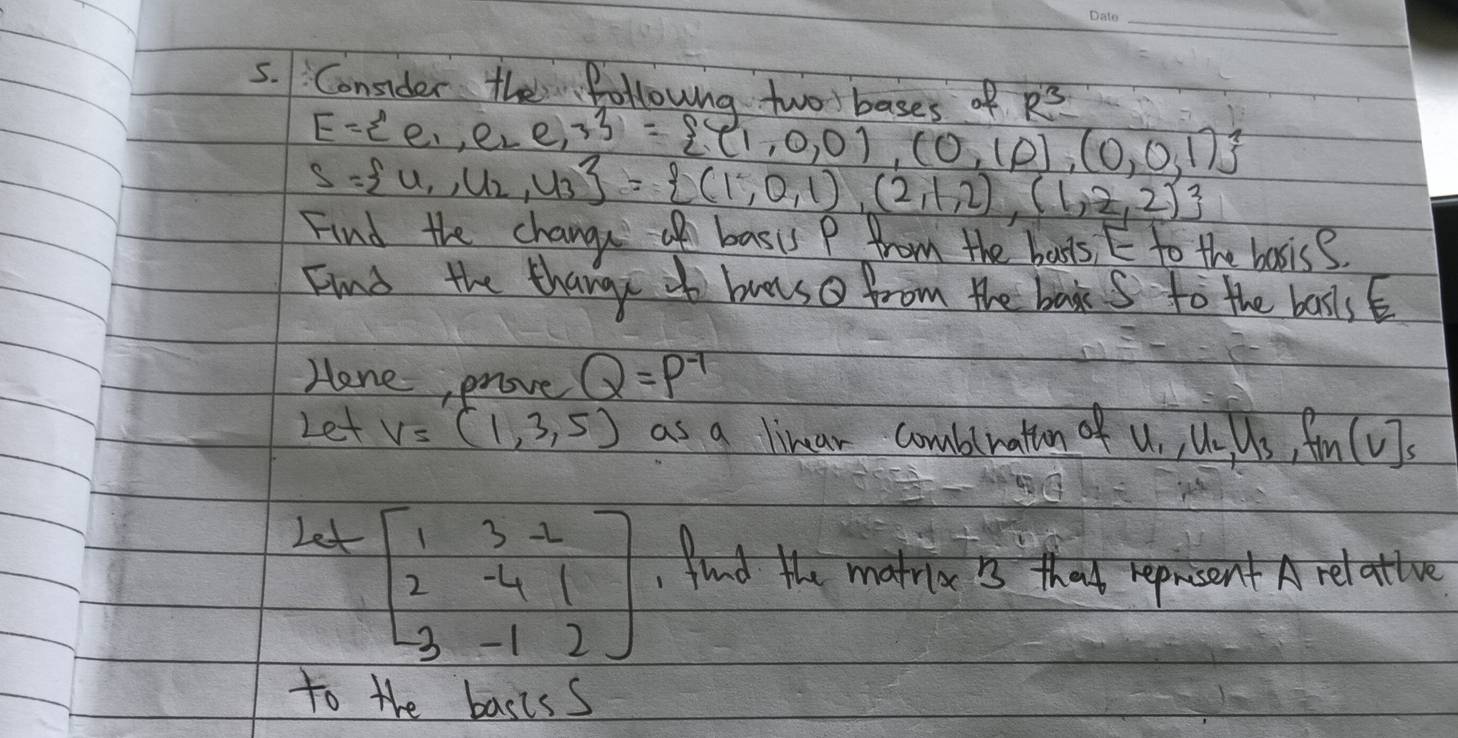 Date
5. Consider the following two bases of R³
E={e₁,e₂ e,₃} = {(1,0,0), (0,10), (0,0,1)}
S={u₁,u₂,u₃} = {(1,0,1), (2,1,2), (1,2,2)}
Find the change of basis P from the basis E to the basis S.
Find the change of Q from the basis S to the basis E
Hene, prove Q=P⁻¹
Let v= (1,3,5) as a linear combination of u₁,u₂,u₃, fin [v]s
Let [1 3 -2
2 -4 1
3 -1 2], find the matrix B that represent A relative
to the basis S